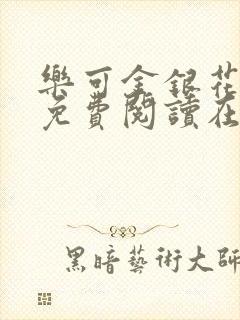 樂可金銀花
免費閱讀在
黑暗藝術大師